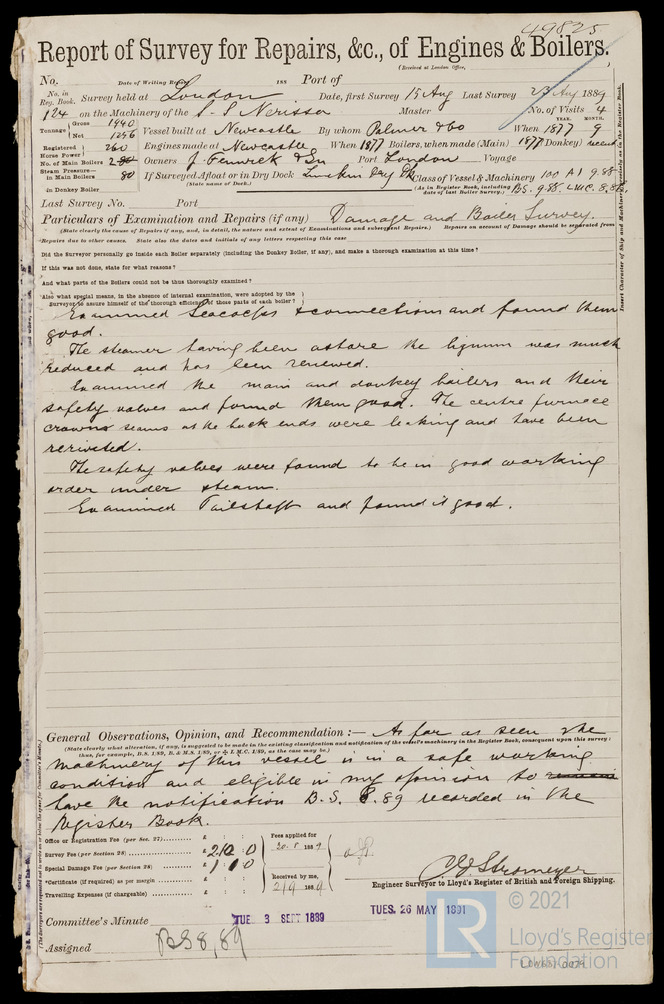 49825
Report of Survey for Repairs, &c., of Engines & Boilers.
(Received at London Office,
No. Date of Writing Report 188 Port of
No. in Reg. Book. Survey held at London Date, first Survey 15 Aug Last Survey 23 Aug 1889
124 on the Machinery of the S.S Nerissa Master No. of Visits 4
Tonnage Gross 1940 Net 1256 Vessel built at Newcastle By whom Palmer & Co When 1877 YEAR. MONTH. 9
Registered Horse Power 260 Engines made at Newcastle When 1877 Boilers, when made (Main) 1877 (Donkey)
No. of Main Boilers 2 Owners J. Fenwick & Sn Port London Voyage
Steam Pressure— in Main Boilers 80 If Surveyed Afloat or in Dry Dock Dry Dk Class of Vessel & Machinery 100 A1 9.88
(State name of Dock.) (As in Register Book, including date of last Boiler Survey.) B.S. 9.88. L.M.C. 8,86
in Donkey Boiler
Last Survey No. Port
Particulars of Examination and Repairs (if any) Damage and Boiler Survey.
(State clearly the cause of Repairs if any, and, in detail, the nature and extent of Examinations and subsequent Repairs.) Repairs on account of Damage should be separated from
Repairs due to other causes. State also the dates and initials of any letters respecting this case
Did the Surveyor personally go inside each Boiler separately (including the Donkey Boiler, if any), and make a thorough examination at this time?
If this was not done, state for what reasons?
And what parts of the Boilers could not be thus thoroughly examined?
Also what special means, in the absence of internal examination, were adopted by the
Surveyor to assure himself of the thorough efficiency of those parts of each boiler?
Examined Seacocks & connections and found them
good.
The steamer having been ashore the lignum was much
reduced and has been renewed.
Examined the main and donkey boilers and their
safety valves and found them good. The centre furnace
crowns seams at the back ends were leaking and have been
rerivited.
The safety valves were found to be in good working
order under steam.
Examined Tailshaft and found it good.
General Observations, Opinion, and Recommendation :— As far as seen the
(State clearly what alteration, if any, is suggested to be made in the existing classification and notification of the vessel's machinery in the Register Book, consequent upon this survey:
thus, for example, B.S. 1/89, B.&M.S. 1/89, or L.M.C. 1/89, as the case may be.)
machinery of this vessel is in a safe working
condition and eligible in my opinion to remain
have the notification B.S. 8.89 recorded in the
Register Book.
Office or Registration Fee (per Sec. 27) £ : : Fees applied for
Survey Fee (per Section 28) £ 2 : 2 : 0 20.8 1889
Special Damage Fee (per Section 28) £ 1 : 1 : 0
*Certificate (if required) as per margin £ : : Received by me,
Travelling Expenses (if chargeable) £ : : 2/9 1889
C. E. Stromeyer
Engineer Surveyor to Lloyd's Register of British and Foreign Shipping.
Committee's Minute TUE 3 SEPT 1889 TUES. 26 MAY 1891
Assigned BS 8,89
LR © 2021
Lloyd's Register
Foundation